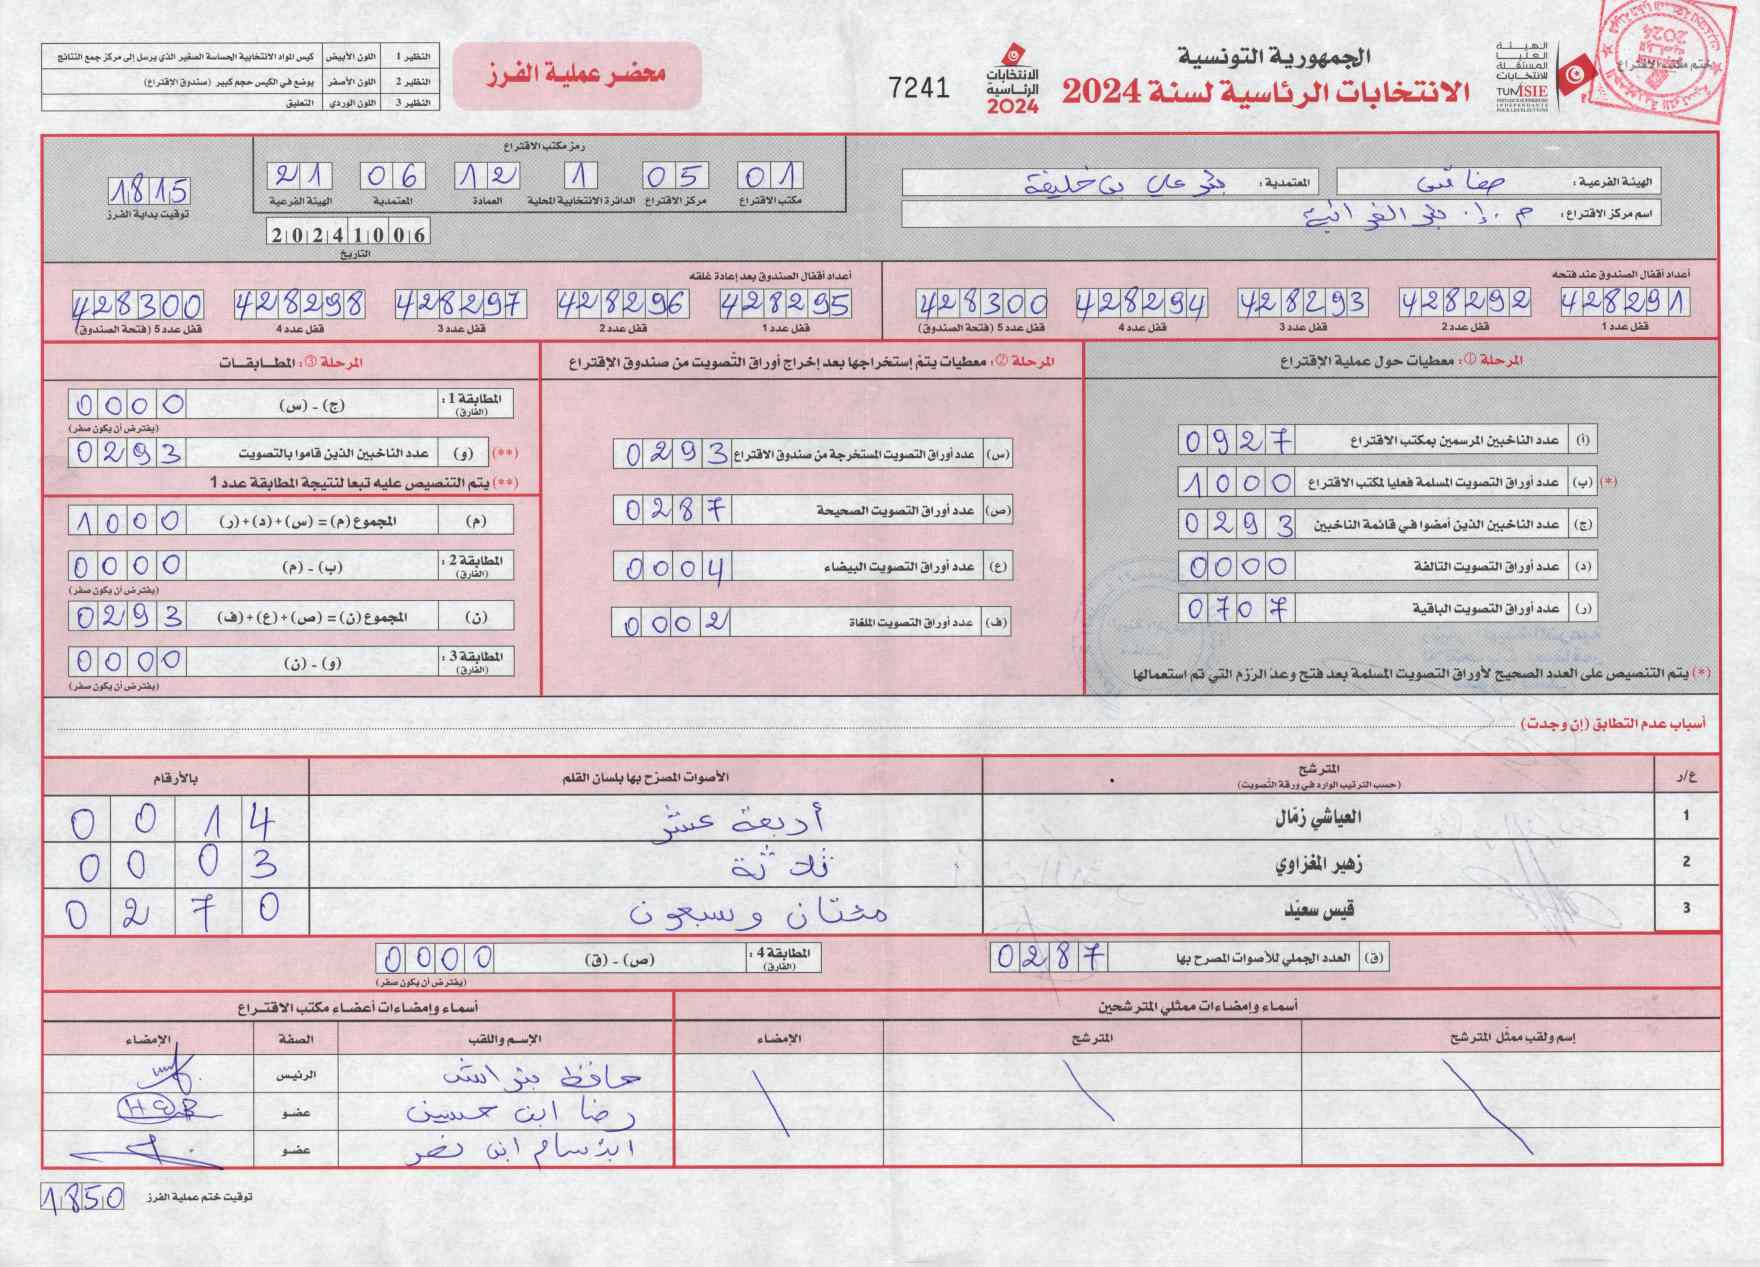 الجمهورية التونسية
الانتخابات الرئاسية لسنة 2024
الهيئة العليا المستقلة للانتخابات
TUNISIE
ختم مكتب الاقتراع
الانتخابات الرئاسية 2024
7241
محضر عملية الفرز
النظير 1 اللون الأبيض كيس المواد الانتخابية الحساسة الصغير الذي يرسل إلى مركز جمع النتائج
النظير 2 اللون الأصفر يوضع في الكيس حجم كبير (صندوق الإقتراع)
النظير 3 اللون الوردي التعليق
الهيئة الفرعية : صفاقس المعتمدية : بئر علي بن خليفة
اسم مركز الاقتراع :
رمز مكتب الاقتراع
01 05 1 12 06 21
مكتب الاقتراع مركز الاقتراع الدائرة الانتخابية المحلية العمادة المعتمدية الهيئة الفرعية
20241006
التاريخ
1815
توقيت بداية الفرز
أعداد أقفال الصندوق عند فتحه
428291 428292 428293 428294 428300
قفل عدد 1 قفل عدد 2 قفل عدد 3 قفل عدد 4 قفل عدد 5 (فتحة الصندوق)
أعداد أقفال الصندوق بعد إعادة غلقه
428295 428296 428297 428298 428300
قفل عدد 1 قفل عدد 2 قفل عدد 3 قفل عدد 4 قفل عدد 5 (فتحة الصندوق)
المرحلة ①: معطيات حول عملية الإقتراع
(أ) عدد الناخبين المرسمين بمكتب الاقتراع 0927
(*) (ب) عدد أوراق التصويت المسلمة فعليا لمكتب الاقتراع 1000
(ج) عدد الناخبين الذين أمضوا في قائمة الناخبين 0293
(د) عدد أوراق التصويت التالفة 0000
(ر) عدد أوراق التصويت الباقية 0707
(*) يتم التنصيص على العدد الصحيح لأوراق التصويت المسلمة بعد فتح وعد الرّزم التي تم استعمالها
المرحلة ②: معطيات يتم إستخراجها بعد إخراج أوراق التّصويت من صندوق الإقتراع
(س) عدد أوراق التصويت المستخرجة من صندوق الاقتراع 0293
(ص) عدد أوراق التصويت الصحيحة 0287
(ع) عدد أوراق التصويت البيضاء 0004
(ف) عدد أوراق التصويت الملغاة 0002
المرحلة ③: المطابقات
المطابقة 1 : (الفارق) (ج) - (س) 0000
(يفترض أن يكون صفر)
(**) (و) عدد الناخبين الذين قاموا بالتصويت 0293
(**) يتم التنصيص عليه تبعا لنتيجة المطابقة عدد 1
(م) المجموع (م) = (س) + (د) + (ر) 1000
المطابقة 2 : (الفارق) (ب) - (م) 0000
(يفترض أن يكون صفر)
(ن) المجموع (ن) = (ص) + (ع) + (ف) 0293
المطابقة 3 : (الفارق) (و) - (ن) 0000
(يفترض أن يكون صفر)
أسباب عدم التطابق (إن وجدت)
ع/ر المترشح (حسب الترتيب الوارد في ورقة التصويت) الأصوات المصرّح بها بلسان القلم بالأرقام
1 العياشي زمّال أربعة عشر 0014
2 زهير المغزاوي ثلاثة 0003
3 قيس سعيّد مئتان وسبعون 0270
(ق) العدد الجملي للأصوات المصرح بها 0287
المطابقة 4 : (الفارق) (ص) - (ق) 0000
(يفترض أن يكون صفر)
أسماء وإمضاءات ممثلي المترشحين
إسم ولقب ممثّل المترشح المترشح الإمضاء
أسماء وإمضاءات أعضاء مكتب الاقتراع
الإسم واللقب الصفة الإمضاء
حافظ الرئيس
رضا ابن حسين عضو
ابتسام ابن نصر عضو
توقيت ختم عملية الفرز 1850